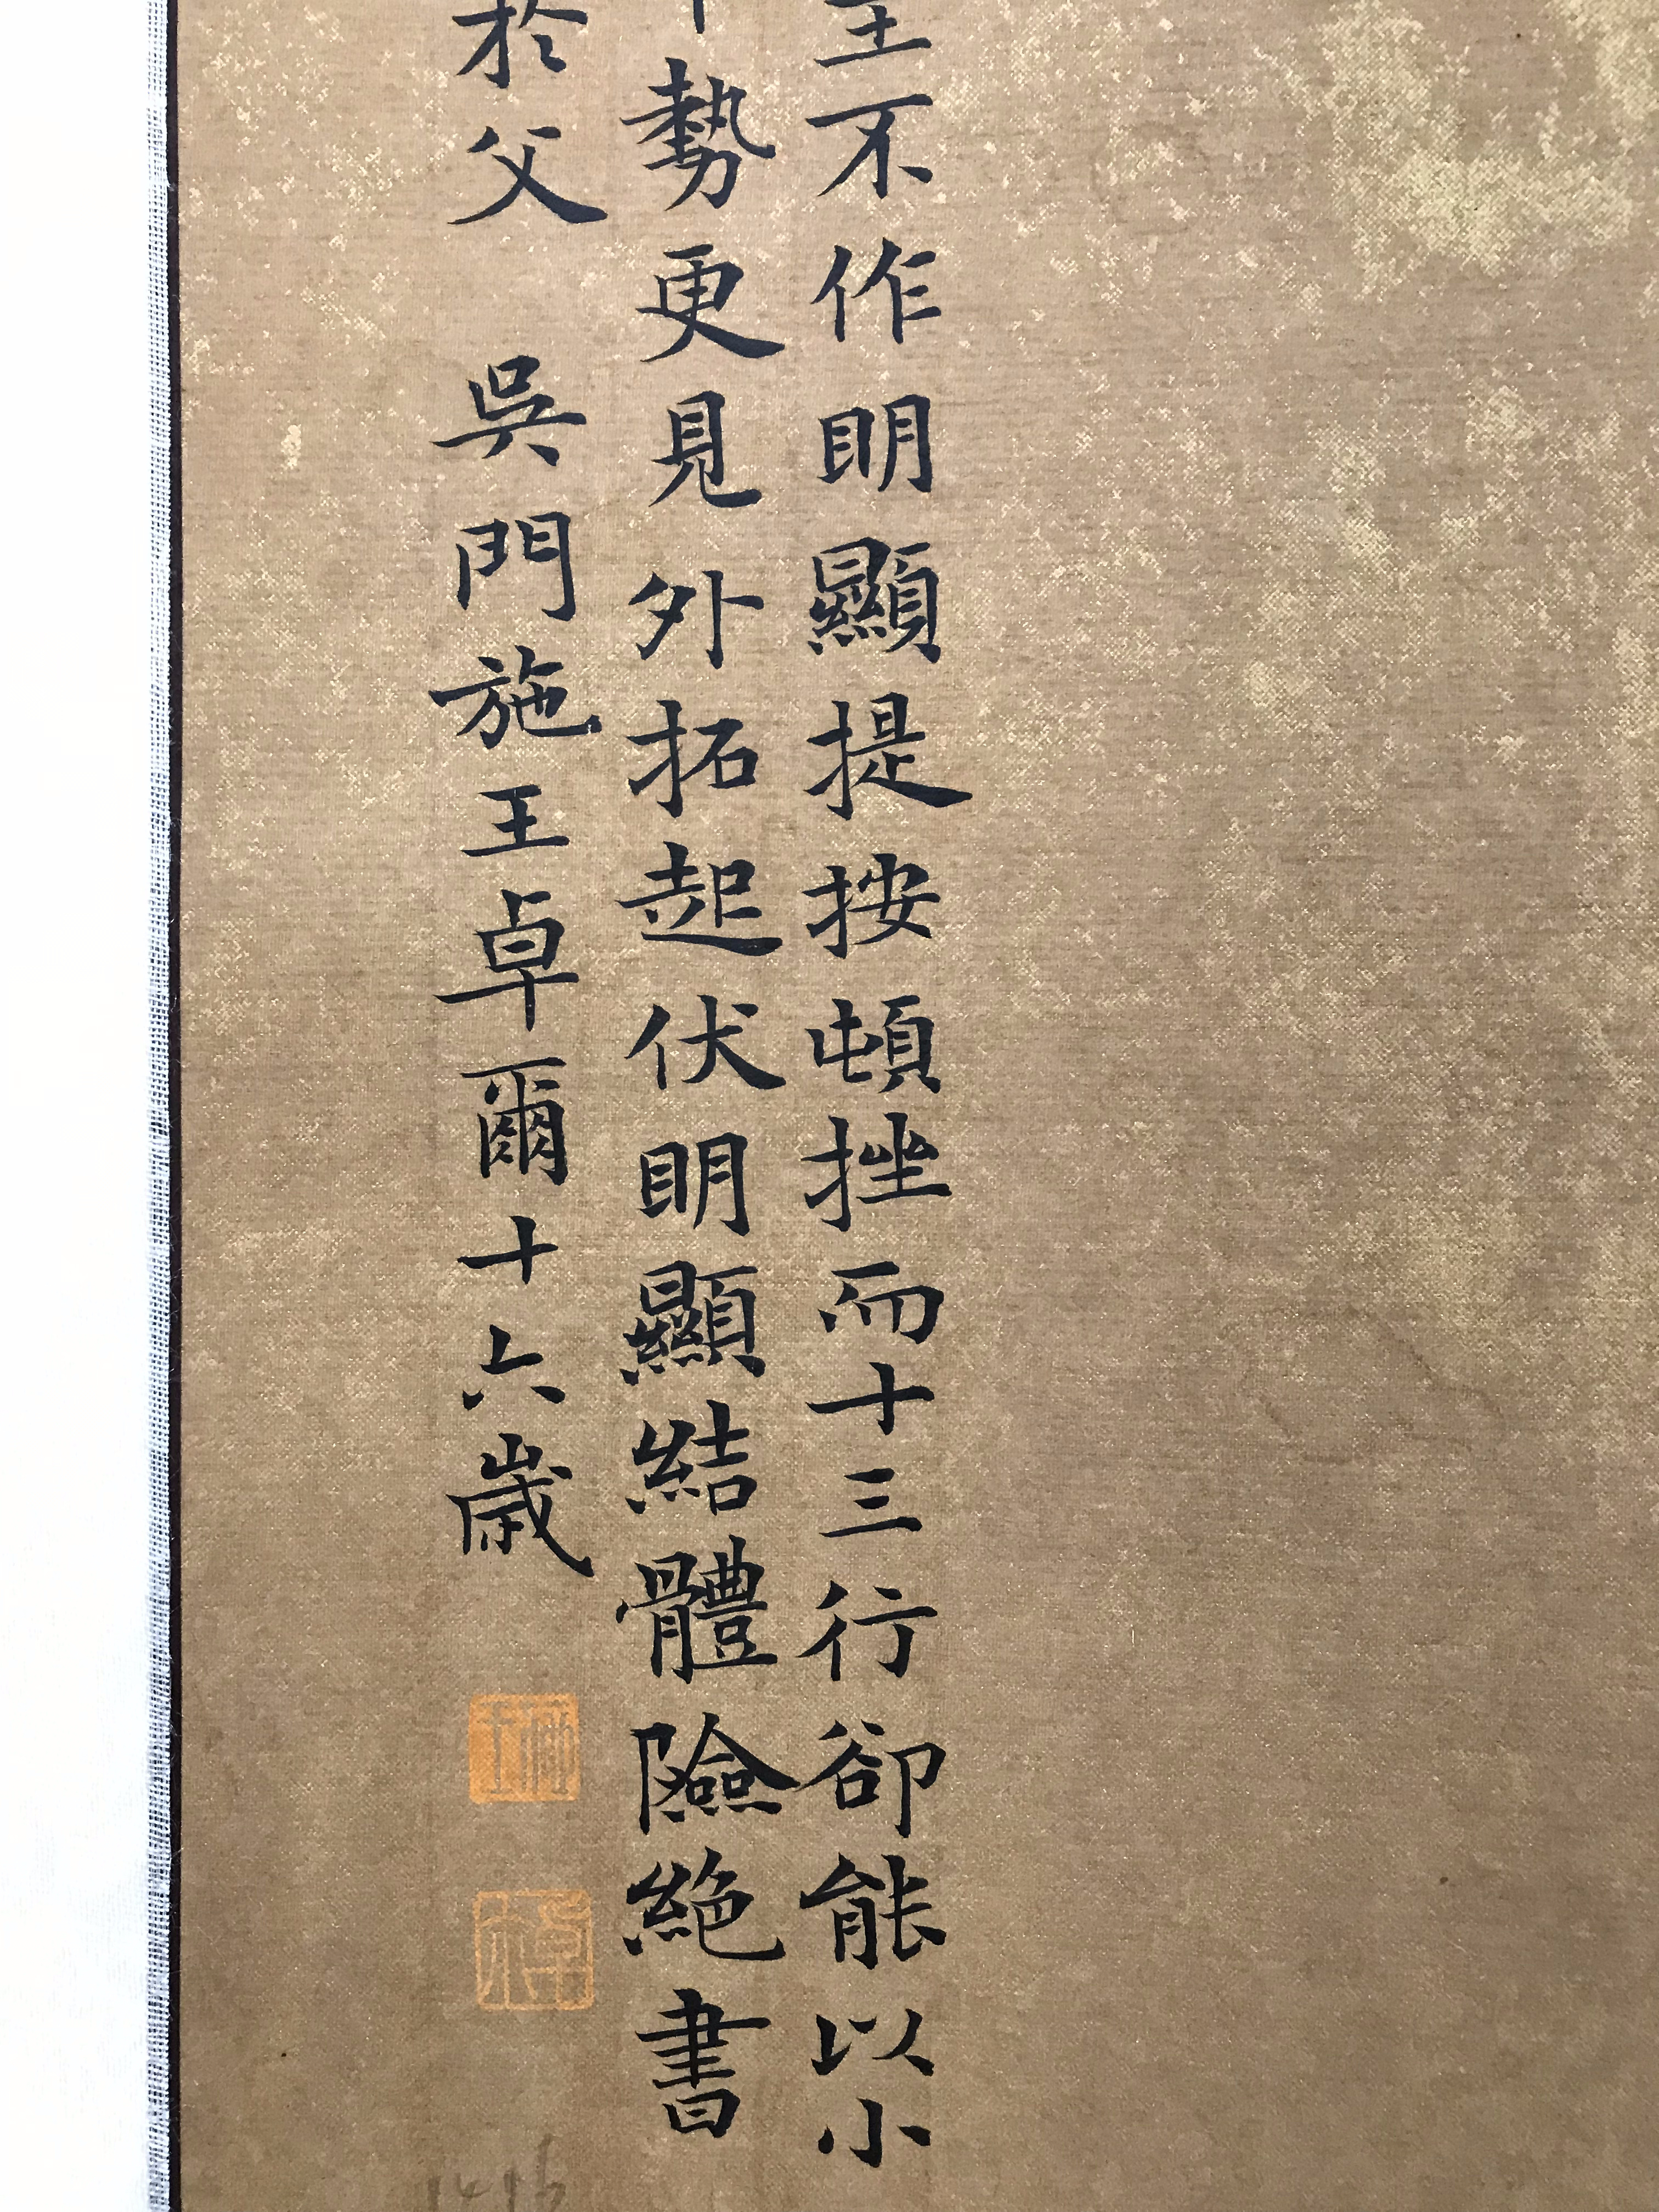 主不作明顯提按頓挫而十三行卻能以小
勢更見外拓起伏明顯結體險絕書
於父 吳門施王卓爾十六歲